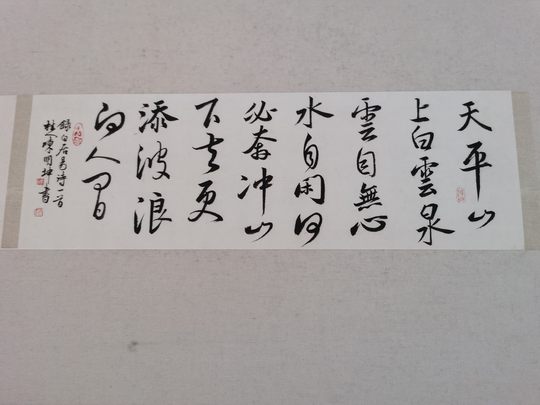 天平山
上白雲泉
雲自無心
水自閑何
必奔冲山
下去更
添波浪
向人間
錄白居易詩一首
陳明坤書